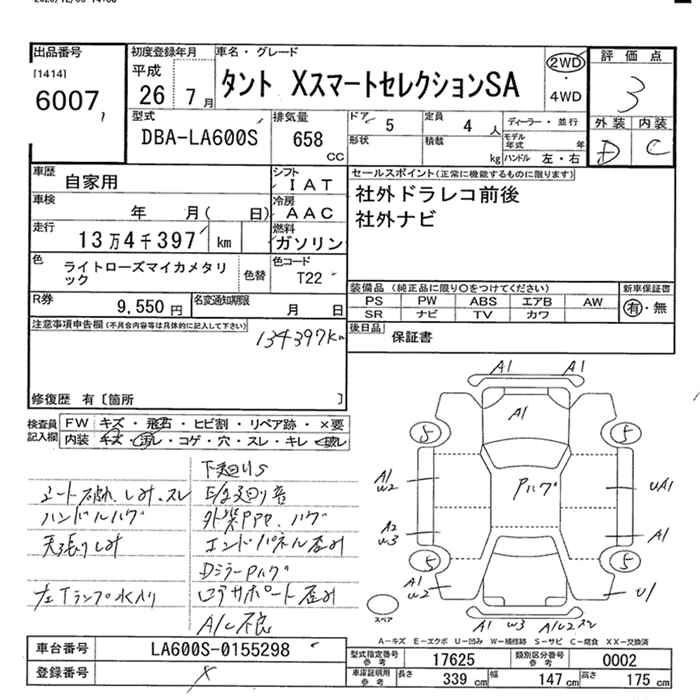 出品番号
[1414]
6007
初度登録年月
平成
26 7月
車名・グレード
タント XスマートセレクションSA
2WD
・
4WD
評価点
3
外装 内装
D C
型式
DBA-LA600S
排気量
658
CC
ドア 5
形状
定員 4 人
積載 kg
ディーラー・並行
モデル年式 年
ハンドル 左・右
車歴
自家用
車検
年 月( 日)
走行
13万4千397 km
色
ライトローズマイカメタリック
色替
シフト
IAT
冷房
AAC
燃料
ガソリン
色コード
T22
セールスポイント(正常に機能するものに限ります)
社外ドラレコ前後
社外ナビ
装備品(純正品に限り○をつけてください)
PS PW ABS エアB AW
SR ナビ TV カワ
新車保証書
有・無
R券
9,550円
名変通知期限
月 日
後日品
保証書
注意事項申告欄(不具合内容等は具体的に記入して下さい)
134397km
修復歴 有〔箇所 〕
検査員記入欄
FW キズ・飛石・ヒビ割・リペア跡・×要
内装 キズ・汚レ・コゲ・穴・スレ・キレ・破レ
下廻りS
シート破れ、しみ、スレ
E/g廻り音
ハンドルハゲ
外装PPセ、ハゲ
天張りしみ
エンドパネル歪み
DミラーPハゲ
左Tランプ水入り
コアサポート歪み
A/C不良
A1 A1
A1
5 5
Pハゲ
A1
W2
UA1
A2
W3
A1
5 5
A1
W2
U1
A1 W3 AU2 スレ
スペア
A-キズ E-エクボ U-凹み W-補修跡 S-サビ C-腐食 XX-交換済
車台番号
LA600S-0155298
登録番号
型式指定番号
参考
17625
類別区分番号
参考
0002
車庫証明用
参考
長さ 339 cm
幅 147 cm
高さ 175 cm